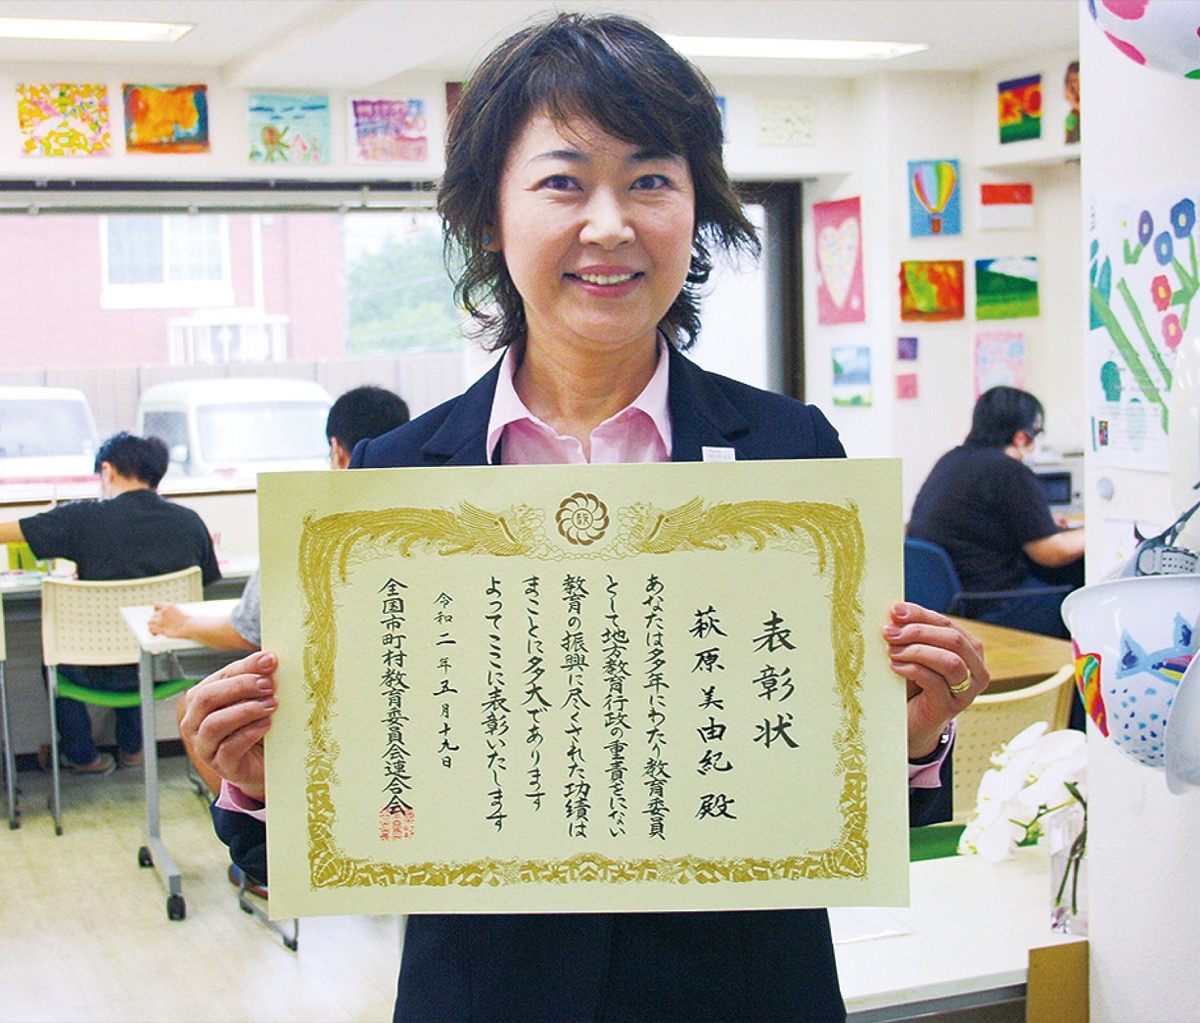 表彰状
萩原美由紀殿
あなたは多年にわたり教育委員
として地方教育行政の重責をにない
教育の振興に尽くされた功績は
まことに多大であります
よってここに表彰いたします
令和二年五月十九日
全国市町村教育委員会連合会